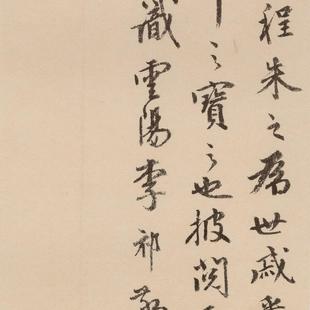 程朱之為世戚
之寶之也披閱
識雲陽李祁敬